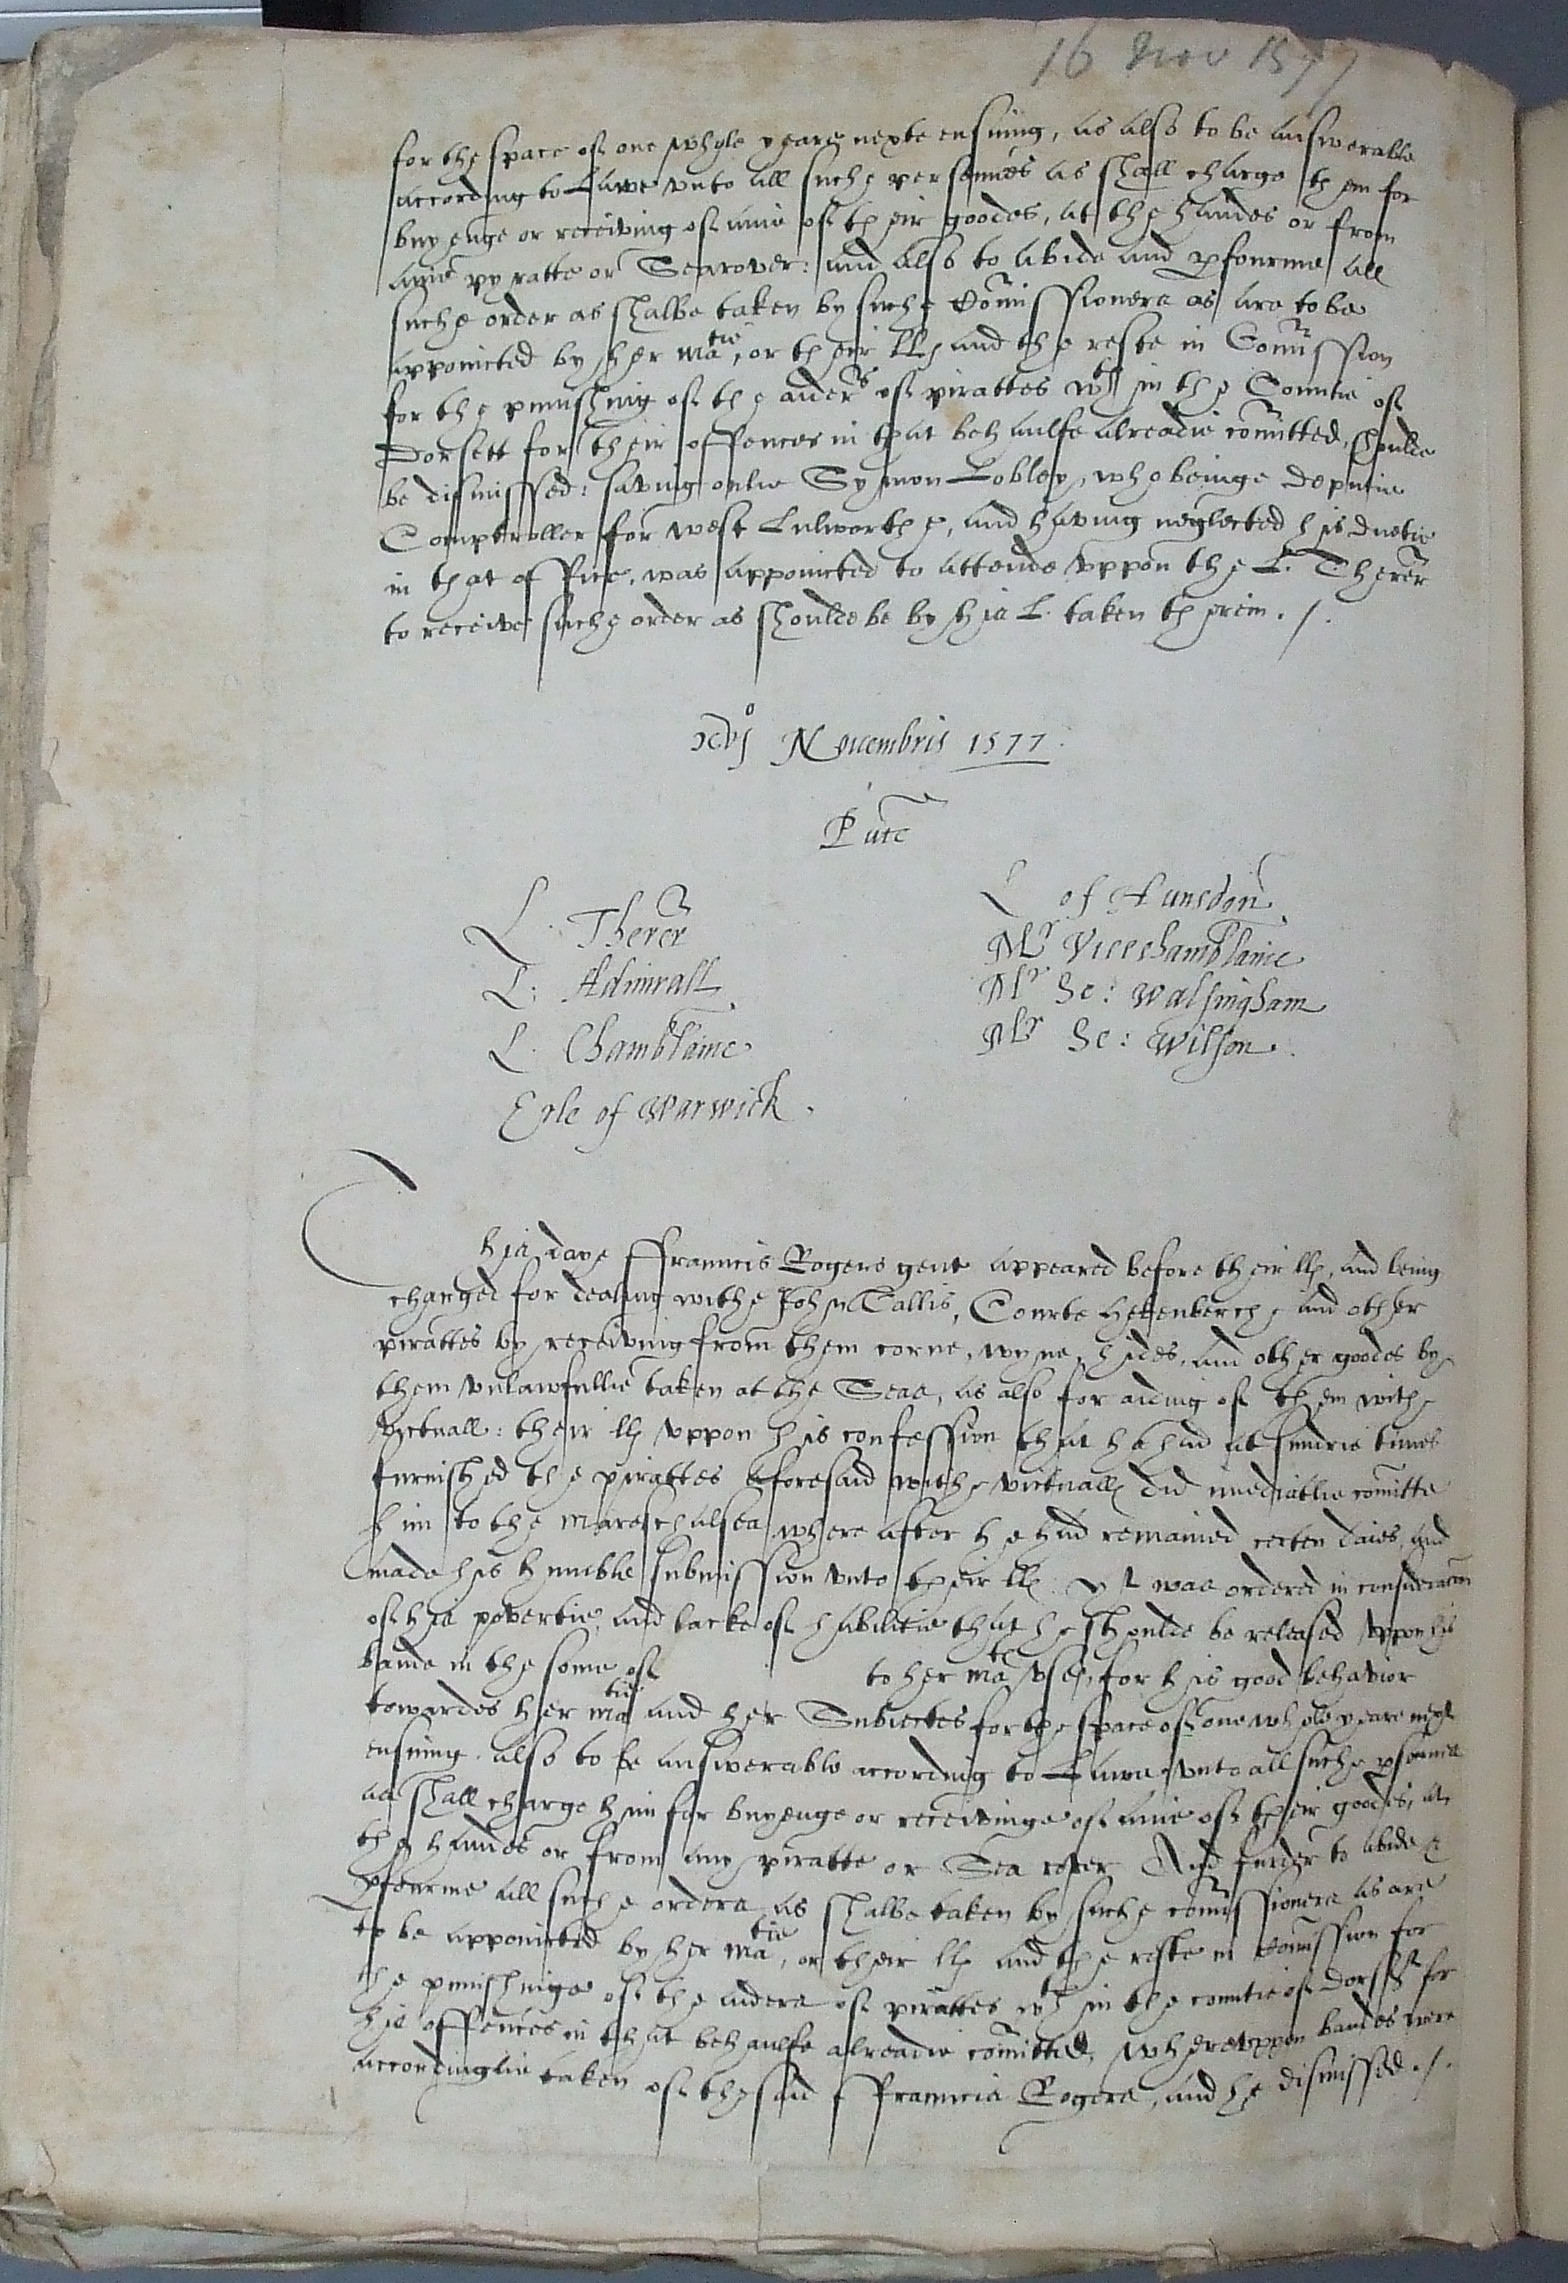 16 Nov 1577
for the space of one whole yeare nexte ensuing, as also to be answerable
according to Lawe vnto all suche personnes as shall charge them for
buyenge or receiving of anie of their goodes, at the handes or from
anie pyratte or Searover: and also to abide and pfourme all
suche order as shalbe taken by suche Comissioners as are to be
appointed by her Matie, or their LLs and the reste in Comission
for the punishing of the aiders of pirattes wth in the Countie of
Dorsett for their offences in that behaulfe alreadie comitted, shoulde
be dismissed: saving onlie Symon Lobley, who beinge Deputie
Comptroller for west Lulworthe, and having neglected his duetie
in that office, was appointed to attende vppon the L. Therer
to receive suche order as shoulde be by his L. taken therein ./.
xvjo Novembris 1577
Pntc
L. Therer
L. Admirall
L. Chamblaine
Erle of Warwick.
L of Hunsdon
Mr Vicechamblaine
Mr Se: Walsingham
Mr Se: Wilson.
This daye ffrauncis Rogers gent appeared before their lls, and being
charged for dealing withe John Callis, Courte Hekenberche and other
pirattes by receiving from them corne, wyne, hides, and other goodes by
them vnlawfullie taken at the Seas, as also for aiding of them withe
victuall: their lls vppon his confession that he had at sundrie times
furnished the pirattes aforesaid withe victuall did imediatlie comitte
him to the Mareschalsea where after he had remained certen daies, and
made his humble submission vnto their lls yt was ordered in consideracon
of his povertie, and lacke of habilitie that he shoulde be released vppon his
bande in the some of to her Mats vse, for his good behavior
towardes her Matie and her Subiectes for the space of one whole yeare next
ensuing. also to be answerable according to Lawe vnto all suche psonnes
as shall charge him for buyenge or receivinge of anie of their goodes, at
the handes or from any piratte or Sea rover And furder to abide &
pfourme all suche orders as shalbe taken by suche comissioners as are
to be appointed by her Matie, or their lls and the reste in Comission for
the punishinge of the aiders of pirattes wth in the countie of Dorset for
his offences in that behaulfe alreadie comitted, Wherevppon bandes were
accordinglie taken of the said ffrauncis Rogers, and he dismissed ./.